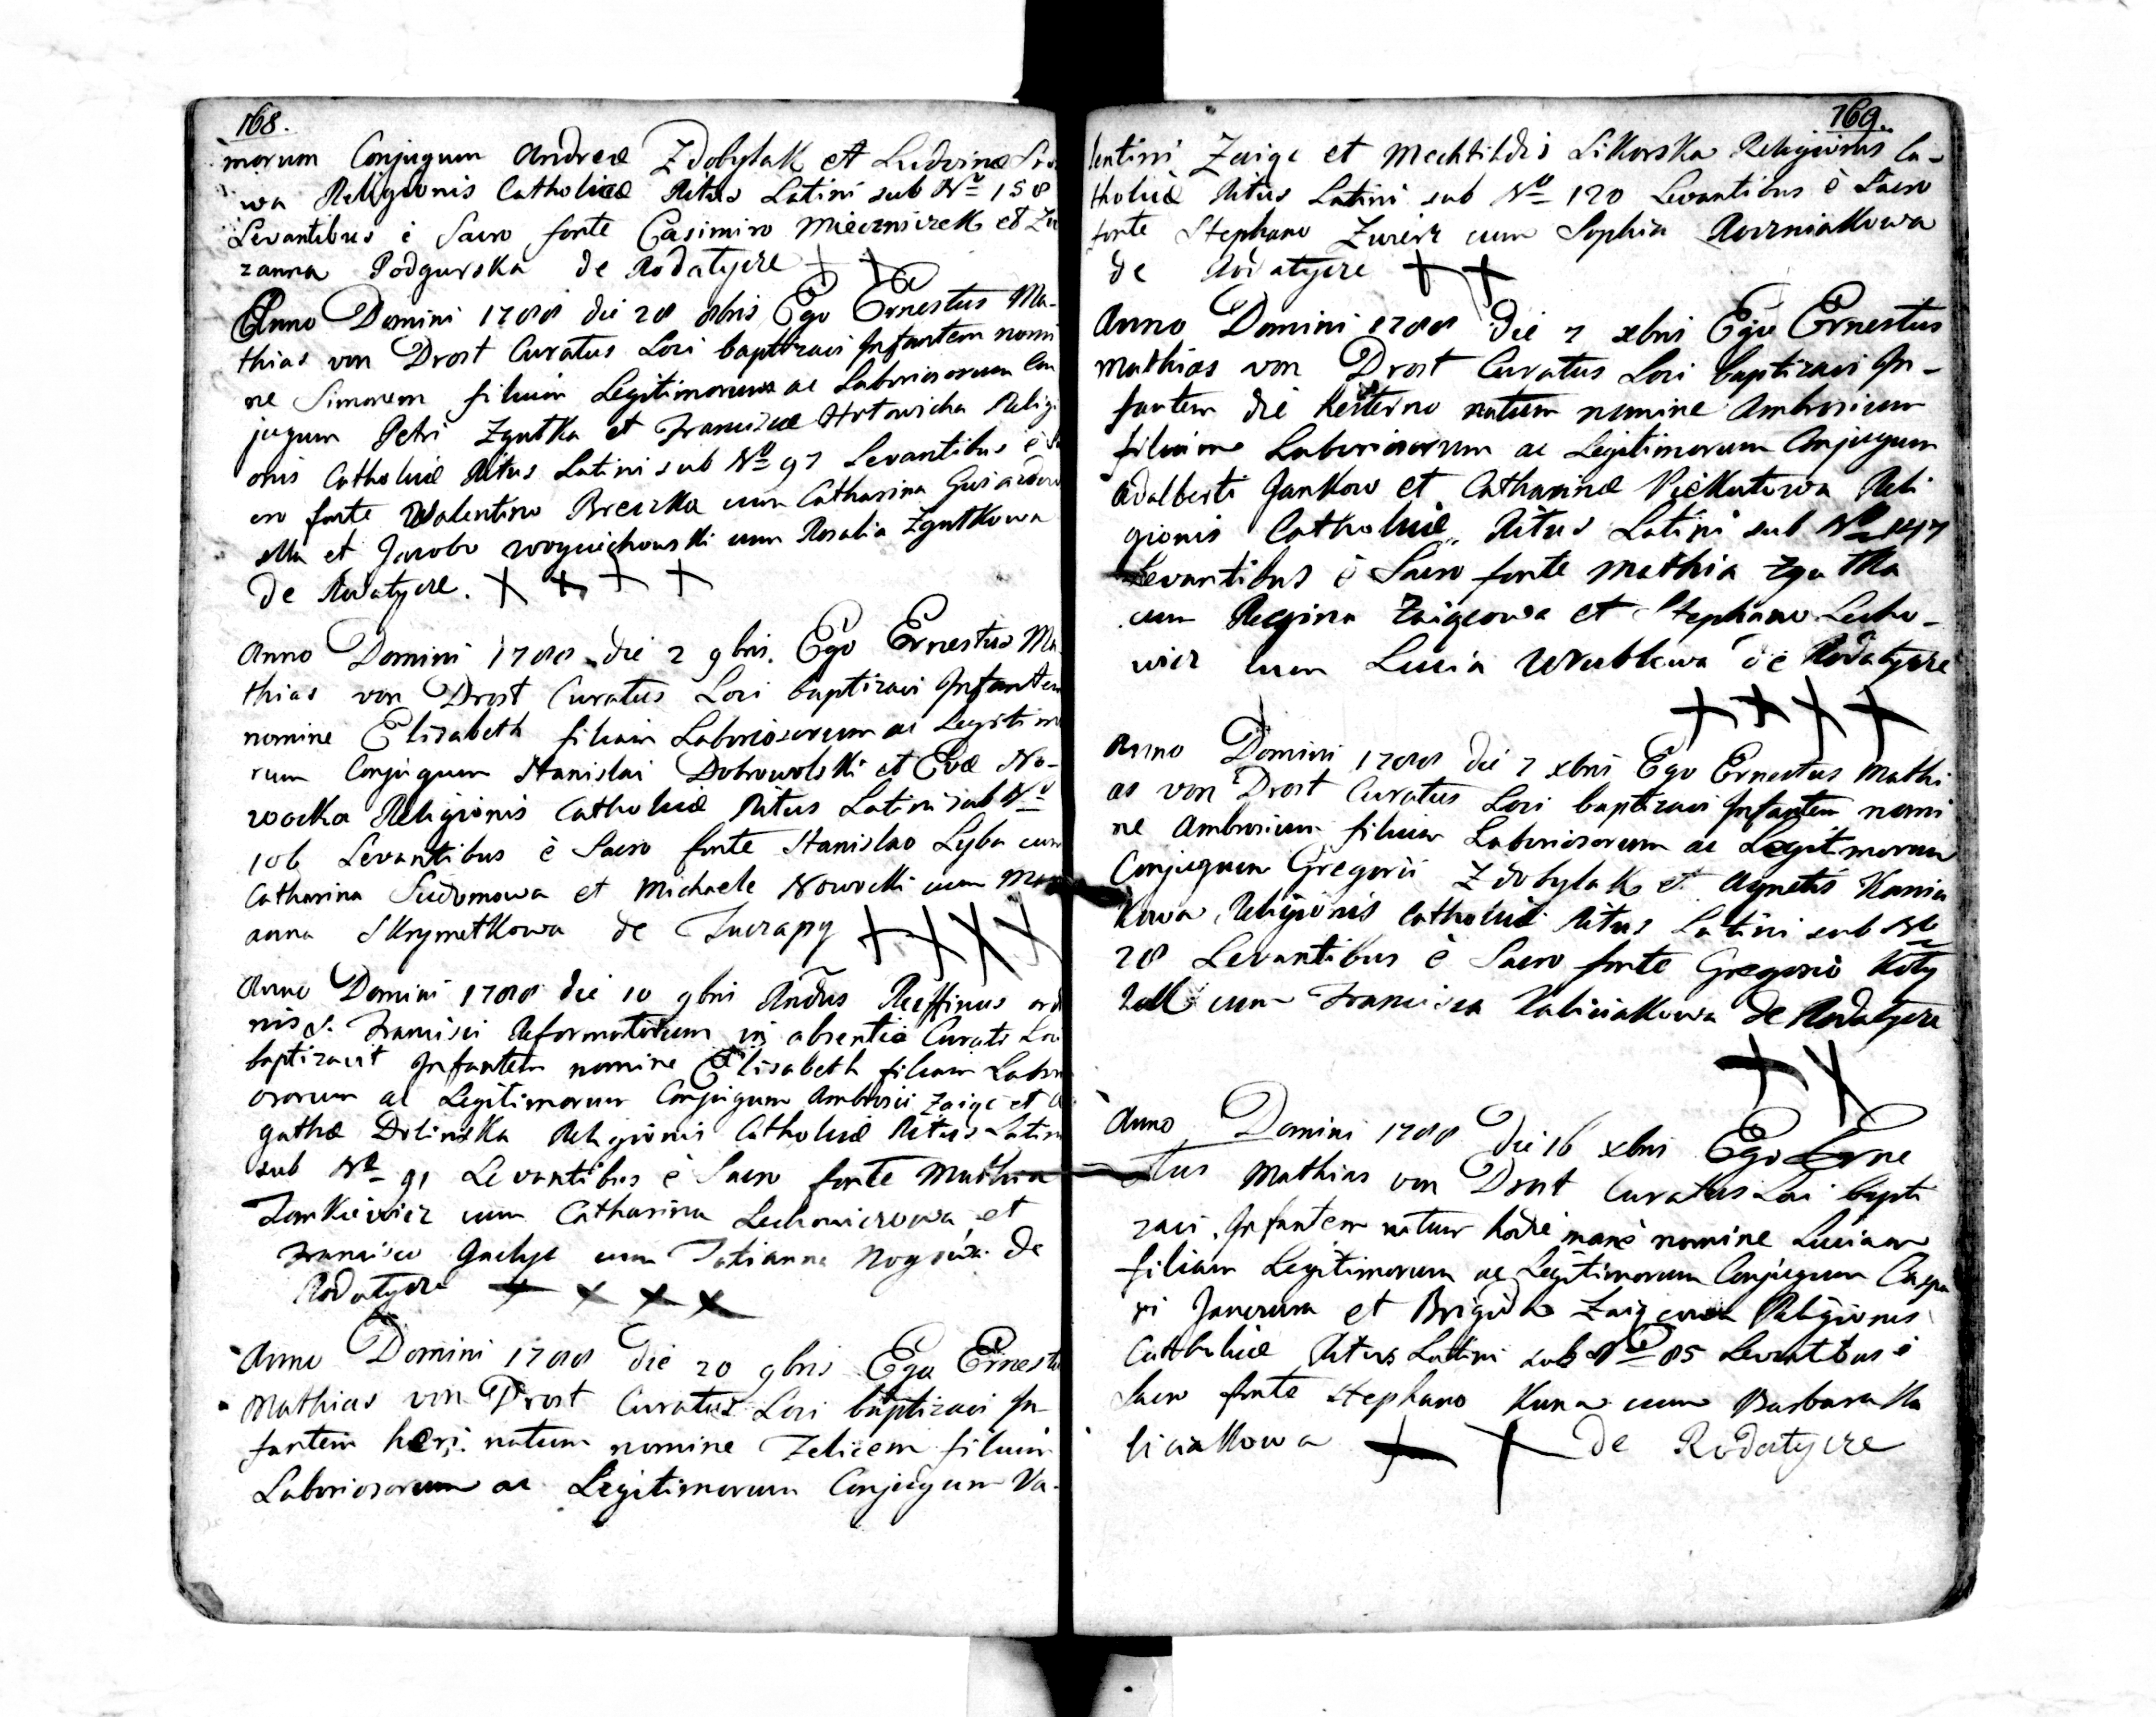 168.
morum Conjugum Andreæ Zdobylak et Ludvinæ
wa Religionis Catholicæ Ritus Latini sub Nro 158
Levantibus è Sacro fonte Casimiro Mieczniczek et Zu
zanna Podgurska de Rodatycze + +
Anno Domini 1788 die 28 8bris Ego Ernestus Ma-
thias von Drost Curatus Loci baptizavi Infantem nomi
ne Simonem filium Legitimorum ac Laboriosorum Con
jugum Petri Zgutka et Franciscæ Hrtowicka Religi
onis Catholicæ Ritus Latini sub Nro 97 Levantibus è Sa
cro fonte Walentino Breczka cum Catharina
ska et Jacobo Woyciechowski cum Rosalia Zgutkowa
de Rodatycze. + + + +
Anno Domini 1788 die 2 9bris. Ego Ernestus Ma
thias von Drost Curatus Loci baptizavi Infantem
nomine Elisabeth filiam Laboriosorum ac Legitimo
rum Conjugum Stanislai Dobrowolski et Evæ No-
wocka Religionis Catholicæ Ritus Latini sub Nro
106 Levantibus è Sacro fonte Stanislao Lyba cum
Catharina Sudomowa et Michaele Nowocki cum Mari
anna Skrymetkowa de Tucrapy + + + +
Anno Domini 1788 die 10 9bris Rndus Ruffinus ordi
nis S. Francisci Reformatorum in absentia Curati Loci
baptizavit Infantem nomine Elisabeth filiam Labori
osorum ac Legitimorum Conjugum Ambrosii Zaigc et A
gathæ Dolinska Religionis Catholicæ Ritus Latini
sub Nro 91 Levantibus è Sacro fonte Mathia
Jankiewicz cum Catharina Lechowiczowa et
Francisco Gnelys cum Tatianna de
Rodatycze + + + +
Anno Domini 1788 die 20 9bris Ego Ernestus
Mathias von Drost Curatus Loci baptizavi In-
fantem heri natum nomine Felicem filium
Laboriosorum ac Legitimorum Conjugum Va-
169.
lentini Zaigc et Mechtildis Sikorska Religionis Ca-
tholicæ Ritus Latini sub Nro 120 Levantibus è Sacro
fonte Stephano Zwierz cum Sophia Kozniakowa
de Rodatycze + +
Anno Domini 1788 die 7 xbris Ego Ernestus
Mathias von Drost Curatus Loci baptizavi In-
fantem die hesterno natum nomine Ambrosium
filium Laboriosorum ac Legitimorum Conjugum
Adalberti Jankow et Catharinæ Piekutowa Reli
gionis Catholicæ Ritus Latini sub Nro 147
Levantibus è Sacro fonte Mathia Zgutka
cum Regina Zaigcowa et Stephano Lecho-
wicz cum Lucia Wrublowa de Rodatycze
+ + + +
Anno Domini 1788 die 7 xbris Ego Ernestus Mathi
as von Drost Curatus Loci baptizavi Infantem nomi
ne Ambrosium filium Laboriosorum ac Legitmorum
Conjugum Gregorii Zdobylak et Agnetis Kania
kowa Religionis Catholicæ Ritus Latini sub Nro
28 Levantibus è Sacro fonte Gregorio
cum Francisca Kaliciakowa de Rodatycze
+ +
Anno Domini 1788 die 16 xbris Ego Erne
stus Mathias von Drost Curatus Loci bapti
zavi Infantem natum hodie mane nomine Luciam
filiam Legitimorum ac Legitimorum Conjugum Caspa
ri Janczura et Brigida Zaigcowa Religionis
Catholicæ Ritus Latini sub Nro 85 Levantibus è
Sacro fonte Stephano Kuna cum Barbara Ka
liciakowa + + de Rodatycze